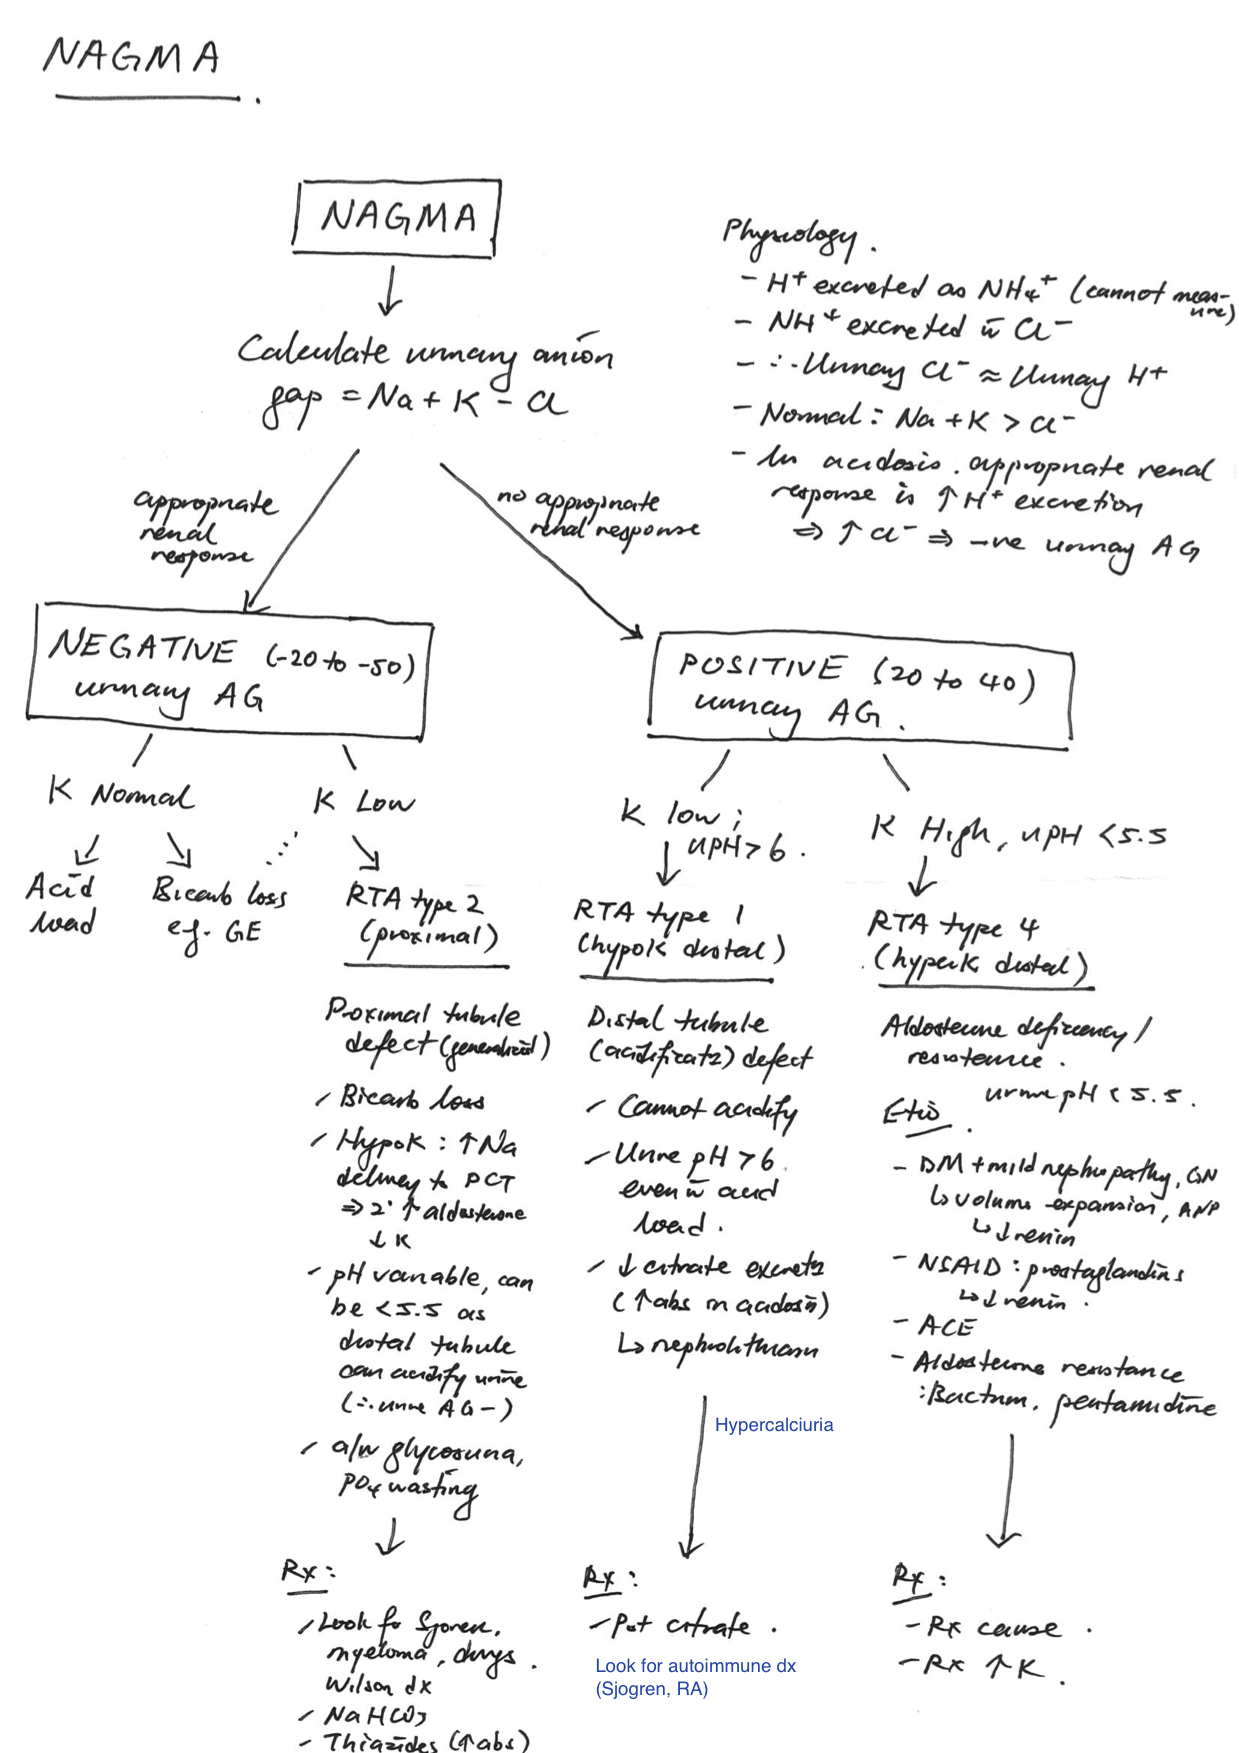 NAGMA
NAGMA
Calculate urinary anion
gap = Na + K - Cl
Physiology.
- H+ excreted as NH4+ (cannot meas-
ure)
- NH+ excreted w̄ Cl-
- ∴ Urinary Cl- ≈ Urinary H+
- Normal: Na + K > Cl-
- In acidosis, appropriate renal
response is ↑ H+ excretion
⇒ ↑ Cl- ⇒ -ve urinary AG
appropriate
renal
response
no appropriate
renal response
NEGATIVE (-20 to -50)
urinary AG
POSITIVE (20 to 40)
urinary AG.
K Normal
K Low
K low;
UpH > 6.
K High, UpH < 5.5
Acid
load
Bicarb loss
eg. GE
RTA type 2
(proximal)
Proximal tubule
defect (generalised)
Bicarb loss
HypoK: ↑ Na
delivery to PCT
⇒ 2° ↑ aldosterone
↓ K
pH variable, can
be < 5.5 as
distal tubule
can acidify urine
(∴ urine AG -)
a/w glycosuria,
PO4 wasting
Rx:
Look for Sjoren,
myeloma, drugs.
Wilson dx
NaHCO3
Thiazides (↑ abs)
RTA type 1
(hypoK distal)
Distal tubule
(acidificatn) defect
Cannot acidify
Urine pH > 6
even w̄ acid
load.
↓ citrate excretn
(↑ abs in acidosis)
↳ nephrolithiasis
Hypercalciuria
Rx:
Pot citrate.
Look for autoimmune dx
(Sjogren, RA)
RTA type 4
(hyperK distal)
Aldosterone deficiency /
resistance.
urine pH < 5.5.
Etio.
- DM + mild nephropathy, GN
↳ volume expansion, ANP
↳ ↓ renin
- NSAID: prostaglandins
↳ ↓ renin.
- ACE
- Aldosterone resistance
: Bactrim, pentamidine
Rx:
- Rx cause.
- Rx ↑ K.